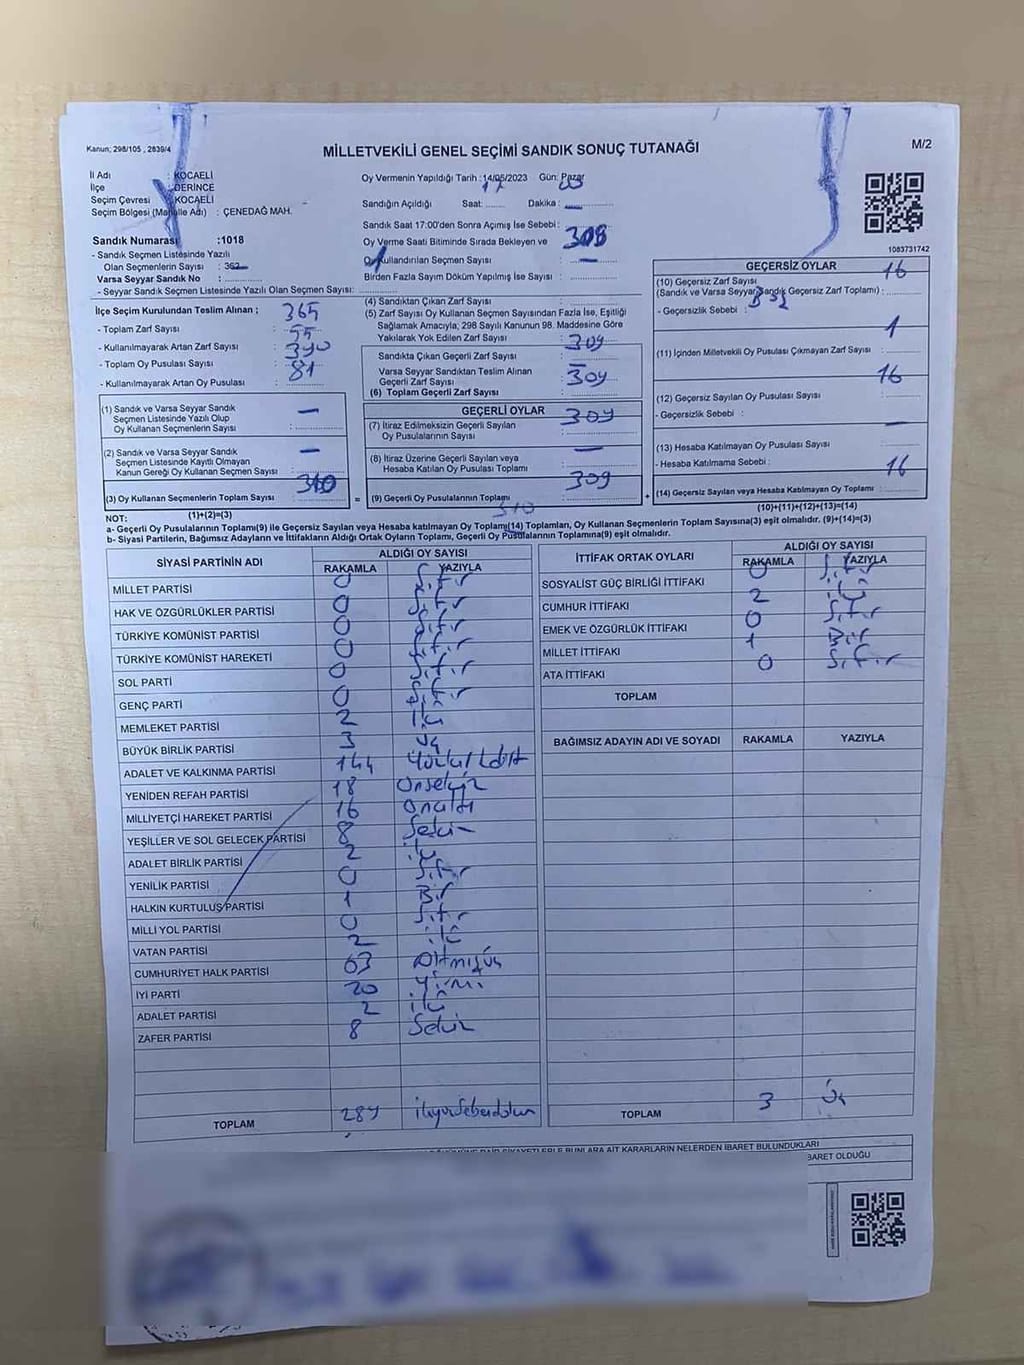 Kanun; 298/105 , 2839/4
MİLLETVEKİLİ GENEL SEÇİMİ SANDIK SONUÇ TUTANAĞI
M/2
İl Adı : KOCAELİ
İlçe : DERİNCE
Seçim Çevresi : KOCAELİ
Seçim Bölgesi (Mahalle Adı) : ÇENEDAĞ MAH.
Sandık Numarası :1018
- Sandık Seçmen Listesinde Yazılı
Olan Seçmenlerin Sayısı : 362
Varsa Seyyar Sandık No :
- Seyyar Sandık Seçmen Listesinde Yazılı Olan Seçmen Sayısı:
Oy Vermenin Yapıldığı Tarih :14/05/2023 Gün: Pazar
Sandığın Açıldığı Saat: 17 Dakika :
Sandık Saat 17:00'den Sonra Açımış İse Sebebi :
Oy Verme Saati Bitiminde Sırada Bekleyen ve 308
Oy Kullandırılan Seçmen Sayısı
Birden Fazla Sayım Döküm Yapılmış İse Sayısı : 1
1083731742
İlçe Seçim Kurulundan Teslim Alınan ; 365
- Toplam Zarf Sayısı : 55
- Kullanılmayarak Artan Zarf Sayısı : 390
- Toplam Oy Pusulası Sayısı : 81
- Kullanılmayarak Artan Oy Pusulası
(1) Sandık ve Varsa Seyyar Sandık
Seçmen Listesinde Yazılı Olup
Oy Kullanan Seçmenlerin Sayısı : —
(2) Sandık ve Varsa Seyyar Sandık
Seçmen Listesinde Kayıtlı Olmayan
Kanun Gereği Oy Kullanan Seçmen Sayısı : —
(3) Oy Kullanan Seçmenlerin Toplam Sayısı : 310
(1)+(2)=(3)
(4) Sandıktan Çıkan Zarf Sayısı :
(5) Zarf Sayısı Oy Kullanan Seçmen Sayısından Fazla İse, Eşitliği
Sağlamak Amacıyla; 298 Sayılı Kanunun 98. Maddesine Göre
Yakılarak Yok Edilen Zarf Sayısı : 309
Sandıkta Çıkan Geçerli Zarf Sayısı : —
Varsa Seyyar Sandıktan Teslim Alınan
Geçerli Zarf Sayısı : 309
(6) Toplam Geçerli Zarf Sayısı
GEÇERLİ OYLAR
(7) İtiraz Edilmeksizin Geçerli Sayılan 309
Oy Pusulalarının Sayısı
(8) İtiraz Üzerine Geçerli Sayılan veya —
Hesaba Katılan Oy Pusulası Toplamı
= (9) Geçerli Oy Pusulalarının Toplamı : 309 +
GEÇERSİZ OYLAR
(10) Geçersiz Zarf Sayısı 16
(Sandık ve Varsa Seyyar Sandık Geçersiz Zarf Toplamı) :
- Geçersizlik Sebebi :
(11) İçinden Milletvekili Oy Pusulası Çıkmayan Zarf Sayısı : 1
(12) Geçersiz Sayılan Oy Pusulası Sayısı : 16
- Geçersizlik Sebebi :
(13) Hesaba Katılmayan Oy Pusulası Sayısı : —
- Hesaba Katılmama Sebebi :
(14) Geçersiz Sayılan veya Hesaba Katılmayan Oy Toplamı : 16
(10)+(11)+(12)+(13)=(14)
310
NOT:
a- Geçerli Oy Pusulalarının Toplamı(9) ile Geçersiz Sayılan veya Hesaba katılmayan Oy Toplamı(14) Toplamları, Oy Kullanan Seçmenlerin Toplam Sayısına(3) eşit olmalıdır. (9)+(14)=(3)
b- Siyasi Partilerin, Bağımsız Adayların ve İttifakların Aldığı Ortak Oyların Toplamı, Geçerli Oy Pusulalarının Toplamına(9) eşit olmalıdır.
SİYASİ PARTİNİN ADI ALDIĞI OY SAYISI
RAKAMLA YAZIYLA
MİLLET PARTİSİ 0 Sıfır
HAK VE ÖZGÜRLÜKLER PARTİSİ 0 Sıfır
TÜRKİYE KOMÜNİST PARTİSİ 0 Sıfır
TÜRKİYE KOMÜNİST HAREKETİ 0 Sıfır
SOL PARTİ 0 Sıfır
GENÇ PARTİ 0 Sıfır
MEMLEKET PARTİSİ 2 iki
BÜYÜK BİRLİK PARTİSİ 3 Üç
ADALET VE KALKINMA PARTİSİ 144
YENİDEN REFAH PARTİSİ 18 Onsekiz
MİLLİYETÇİ HAREKET PARTİSİ 16 Onaltı
YEŞİLLER VE SOL GELECEK PARTİSİ 8 Sekiz
ADALET BİRLİK PARTİSİ 2 iki
YENİLİK PARTİSİ 0 Sıfır
HALKIN KURTULUŞ PARTİSİ 1 Bir
MİLLİ YOL PARTİSİ 0 Sıfır
VATAN PARTİSİ 2 iki
CUMHURİYET HALK PARTİSİ 63 Altmışüç
İYİ PARTİ 20 Yirmi
ADALET PARTİSİ 2 iki
ZAFER PARTİSİ 8 Sekiz
TOPLAM 289
İTTİFAK ORTAK OYLARI ALDIĞI OY SAYISI
RAKAMLA YAZIYLA
SOSYALİST GÜÇ BİRLİĞİ İTTİFAKI 0 Sıfır
CUMHUR İTTİFAKI 2 iki
EMEK VE ÖZGÜRLÜK İTTİFAKI 0 Sıfır
MİLLET İTTİFAKI 1 Bir
ATA İTTİFAKI 0 Sıfır
TOPLAM
BAĞIMSIZ ADAYIN ADI VE SOYADI RAKAMLA YAZIYLA
TOPLAM 3 Üç
KARARLARIN NELERDEN İBARET BULUNDUKLARI
BARET OLDUĞU